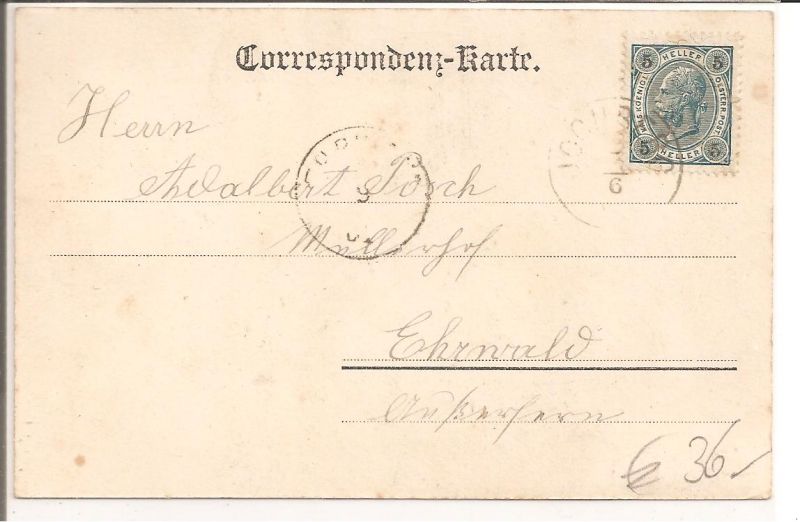 Correspondenz-Karte.
5 HELLER 5
KAIS. KOENIGL. OESTERR. POST
5 HELLER 5
Herrn
Adalbert Posch
6
Müllerhof
Ehrwald
Außerfern
€ 36,-